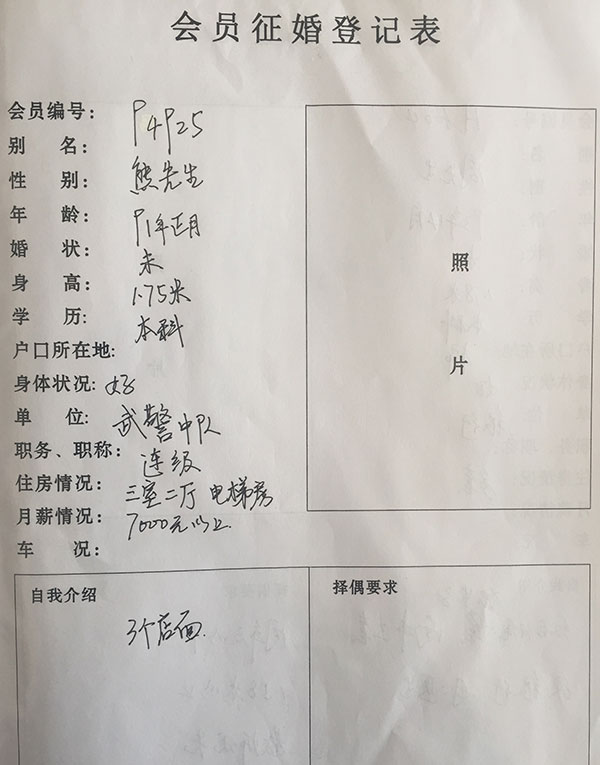 会员征婚登记表
会员编号: P4P25
别 名:
性 别: 熊先生
年 龄: P1年正月
婚 状: 未
身 高: 1.75米
学 历: 本科
户口所在地:
身体状况: 好
单 位: 武警中队
职务、职称: 连级
住房情况: 三室二厅 电梯房
月薪情况: 7000元以上
车 况:
照
片
自我介绍
择偶要求
3个店面.